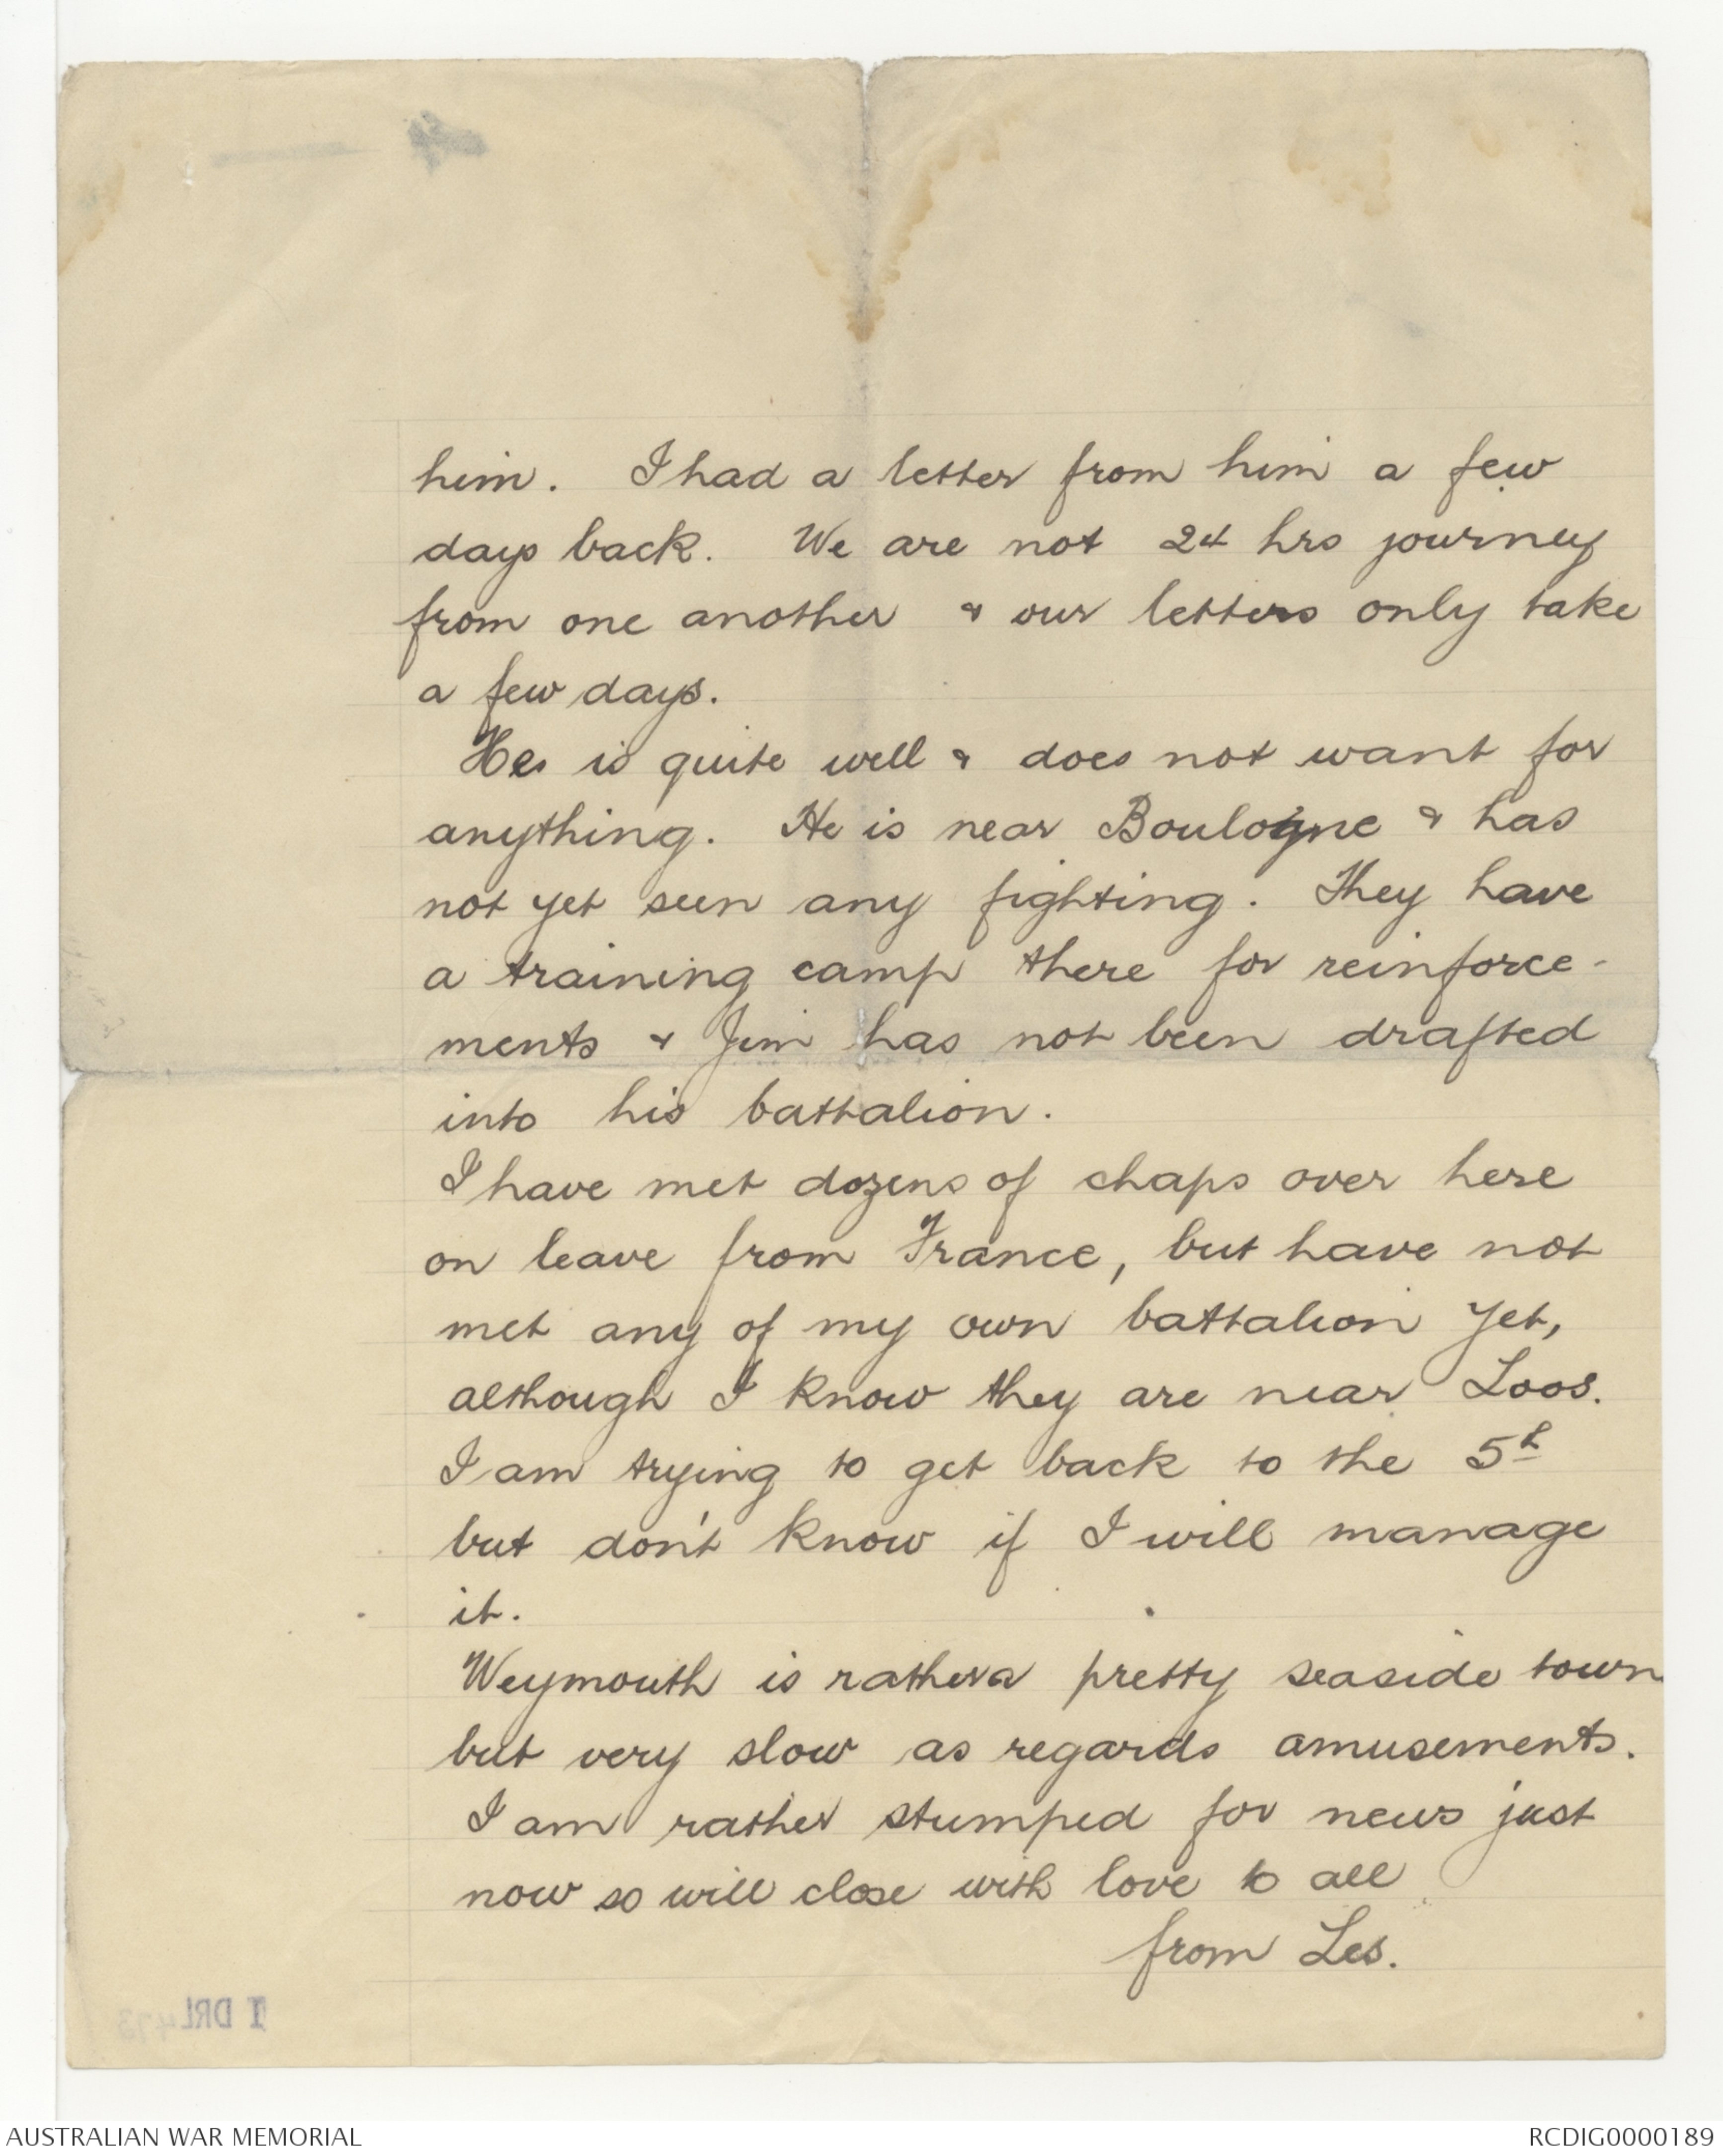 him. I had a letter from him a few
days back. We are not 24 hrs journey
from one another & our letters only take
a few days.
He is quite well & does not want for
anything. He is near Boulogne & has
not yet seen any fighting. They have
a training camp there for reinforce-
ments & Jim has not been drafted
into his battalion.
I have met dozens of chaps over here
on leave from France, but have not
met any of my own battalion yet,
although I know they are near Loos.
I am trying to get back to the 5th
but don't know if I will manage
it.
Weymouth is rather a pretty seaside town
but very slow as regards amusements.
I am rather stumped for news just
now so will close with love to all
from Les.
1 DRL 473
AUSTRALIAN WAR MEMORIAL
RCDIG0000189